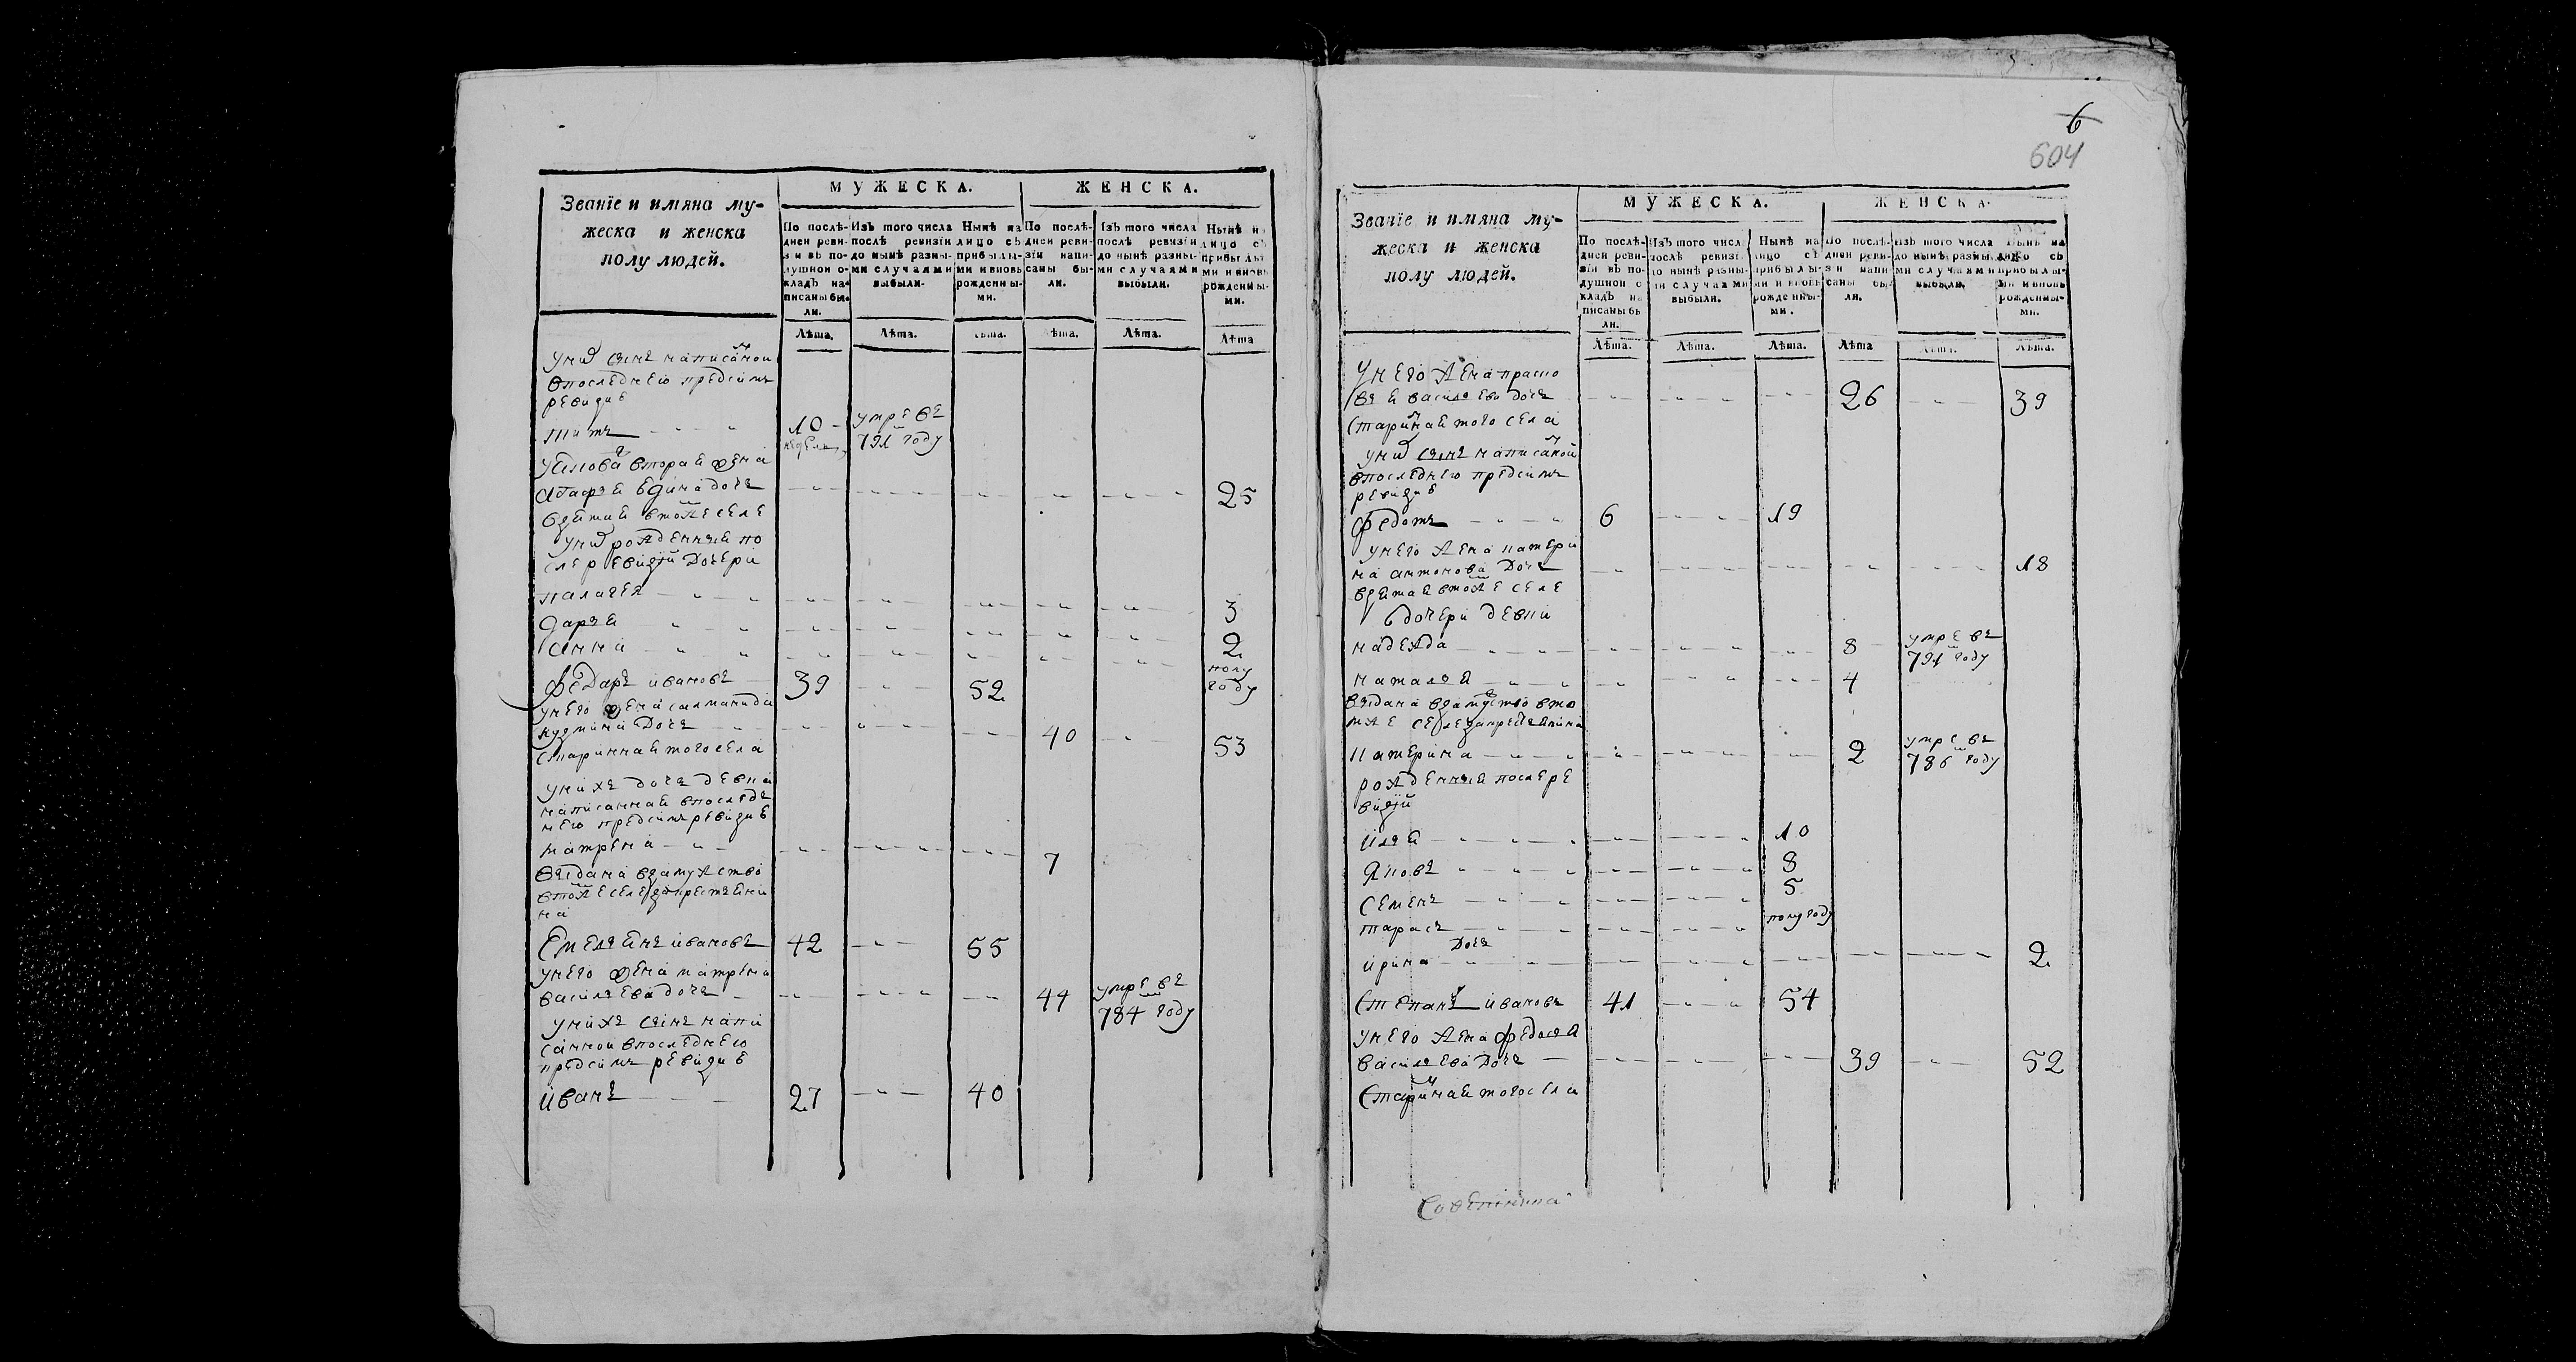 Званіе и имяна му-
жеска и женска
полу людей.
МУЖЕСКА.
ЖЕНСКА.
По послѣ-
дней реви-
зіи въ по-
душной о-
кладъ на-
писаны бы-
ли.
Изъ того числа
послѣ ревизіи
до нынѣ разны-
ми случаями
выбыли.
Нынѣ на
лицо съ
прибылы-
ми и вновь
рожденны-
ми.
По послѣ-
дней реви-
зіи напи-
саны бы-
ли.
Изъ того числа
послѣ ревизіи
до нынѣ разны-
ми случаями
выбыли.
Нынѣ на
лицо съ
прибылы-
ми и вновь
рожденны-
ми.
Лѣта. Лѣта. Лѣта. Лѣта. Лѣта. Лѣта
у нихъ сынъ написанои
впоследнею предсимъ
ревизиѣ
титъ 10 умре въ
недель 791 году
вторая жена
дочь 25
взятая втомже селе
у нихъ рожденныя по
сле ревизіи дочери
палагея 3
дарья 2
анна полу
году
федаръ ивановъ 39 52
у него жена саламанида
кузмина дочь 40 53
старинная того села
у нихъ дочь девка
написанная впослед
нею предсимъ ревизиѣ
матрена 7
выдана взамужство
втомже селе закрестьяни
на
Емельянъ ивановъ 42 55
у него жена матрена
васильева дочь 44 умре въ
784 году
у нихъ сынъ напи
санной впоследнею
предсимъ ревизиѣ
иванъ 27 40
6
604
Званіе и имяна му-
жеска и женска
полу людей.
МУЖЕСКА.
ЖЕНСКА.
По послѣ-
дней реви-
зіи въ по-
душной о-
кладъ на-
писаны бы-
ли.
Изъ того числа
послѣ ревизіи
до нынѣ разны-
ми случаями
выбыли.
Нынѣ на
лицо съ
прибылы-
ми и вновь
рожденны-
ми.
По послѣ-
дней реви-
зіи напи-
саны бы-
ли.
Изъ того числа
до нынѣ разны-
ми случаями
выбыли.
Нынѣ на
лицо съ
прибылы-
ми и вновь
рожденны-
ми.
Лѣта. Лѣта. Лѣта. Лѣта Лѣта. Лѣта.
У него жена праско
вья васильева дочь 26 39
старинная того села
у нихъ сынъ написаной
впоследнею предсимъ
ревизиѣ
федотъ 6 19
у него жена катери
на антонова дочь 18
взятая втомже селе
дочери девки
надежда 8 умре въ
791 году
наталья 4
выдана взамуство вто
мже селе закрестьянина
катерина 2 умре въ
786 году
рожденныя после ре
визіи
илья 10
яковъ 8
семенъ 5
тарасъ полугоду
дочь
ирина 2
степанъ ивановъ 41 54
у него жена федосья
васильева дочь 39 52
старинная того села